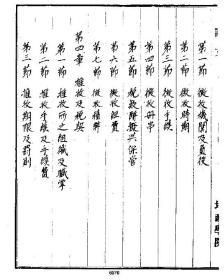 第一節 徵收機關及員役
第二節 徵收時期
第三節 徵收手續
第四節 徵收冊串
第五節 稅款解撥與保管
第六節 徵收經費
第七節 徵收積弊
第四章 推收及稅契
第一節 推收所之組織及職掌
第二節 推收手續及手續費
第三節 推收期限及罰則
6576